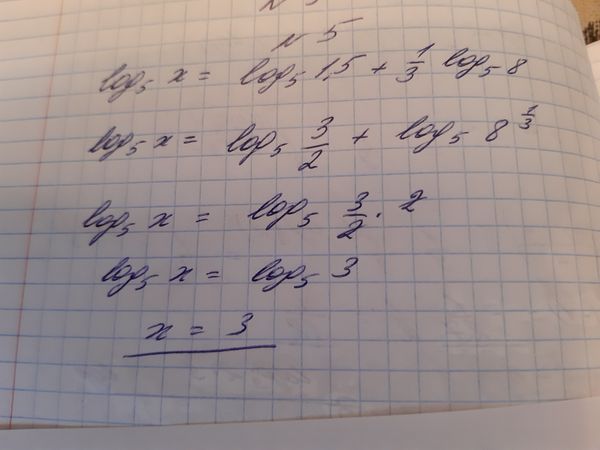 N 5
log₅ x = log₅ 1,5 + 1/3 log₅ 8
log₅ x = log₅ 3/2 + log₅ 8^(1/3)
log₅ x = log₅ 3/2 · 2
log₅ x = log₅ 3
x = 3